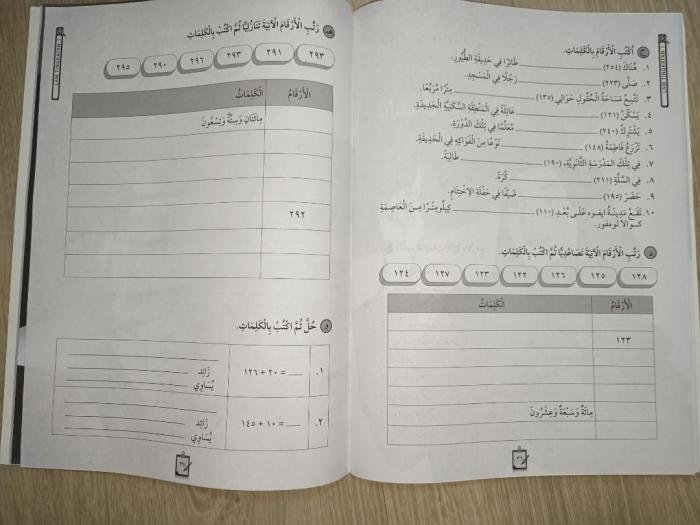 ج اُكْتُبِ الْأَرْقَامَ بِالْكَلِمَاتِ.
١. هُنَاكَ (٢٥٤) ــــــــــ طَائِرًا فِي حَدِيقَةِ الطُّيُورِ.
٢. صَلَّى (٢٢٣) ــــــــــ رَجُلًا فِي الْمَسْجِدِ.
٣. تَتَّسِعُ مَسَاحَةُ الْحُقُولِ حَوَالَي (١٣٥) ــــــــــ مِتْرًا مُرَبَّعًا.
٤. يَسْكُنُ (١٢١) ــــــــــ عَائِلَةً فِي الْمَنْطِقَةِ السَّكَنِيَّةِ الْجَدِيدَةِ.
٥. يَشْتَرِكُ (٢٤٠) ــــــــــ مُعَلِّمًا فِي تِلْكَ الدَّوْرَةِ.
٦. تَزْرَعُ فَاطِمَةُ (١٤٨) ــــــــــ نَوْعًا مِنَ الْفَوَاكِهِ فِي الْحَدِيقَةِ.
٧. فِي تِلْكَ الْمَدْرَسَةِ الثَّانَوِيَّةِ، (١٩٠) ــــــــــ طَالِبَةً.
٨. فِي السَّلَّةِ (٢١١) ــــــــــ كُرَةً.
٩. حَضَرَ (١٩٥) ــــــــــ ضَيْفًا فِي حَفْلَةِ الِاخْتِتَامِ.
١٠. تَقَعُ مَدِينَةُ ايفوه عَلَى بُعْدِ (١١٠) ــــــــــ كِيلُومِتْرًا مِنَ الْعَاصِمَةِ
كوالا لومفور.
د رَتِّبِ الْأَرْقَامَ الْآتِيَةَ تَصَاعُدِيًّا ثُمَّ اكْتُبْ بِالْكَلِمَاتِ.
١٢٨ ١٢٥ ١٢٦ ١٢٢ ١٢٣ ١٢٧ ١٢٤
الْأَرْقَامُ الْكَلِمَاتُ
١٢٣
مِائَةٌ وَسَبْعَةٌ وَعِشْرُونَ
٣٦
هـ رَتِّبِ الْأَرْقَامَ الْآتِيَةَ تَنَازُلِيًّا ثُمَّ اكْتُبْ بِالْكَلِمَاتِ.
٢٩٣ ٢٩١ ٢٩٣ ٢٩٦ ٢٩٠ ٢٩٥
الْأَرْقَامُ الْكَلِمَاتُ
مِائَتَانِ وَسِتَّةٌ وَتِسْعُونَ
٢٩٢
و حُلَّ ثُمَّ اكْتُبْ بِالْكَلِمَاتِ.
١. ١٢٦ + ٢٠ = ــــ
زَائِد
يُسَاوِي
٢. ١٤٥ + ١٠ = ــــ
زَائِد
يُسَاوِي
٣٧